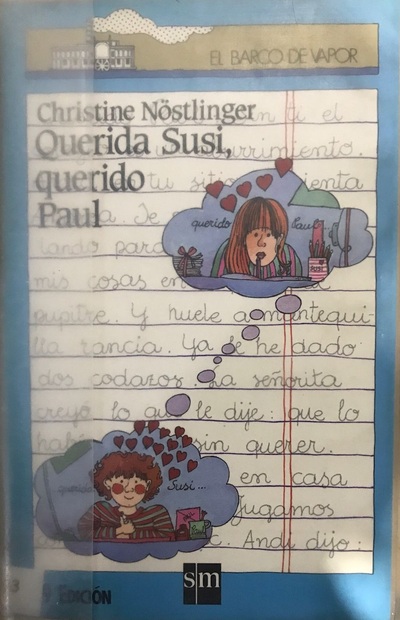 EL BARCO DE VAPOR
Christine Nöstlinger
Querida Susi,
querido
Paul
ti el
urrimiento.
tu sitio ienta
Te
querido Paul
tando
mis cosas en
pupitre. Y huele a mantequi-
lla rancia. Ya le he dado
dos codazos. La señorita
creyó lo que le dije: que lo
había sin querer.
en casa
querida Susi...
Jugamos
c. Andi dijo:
3
EDICIÓN
sm